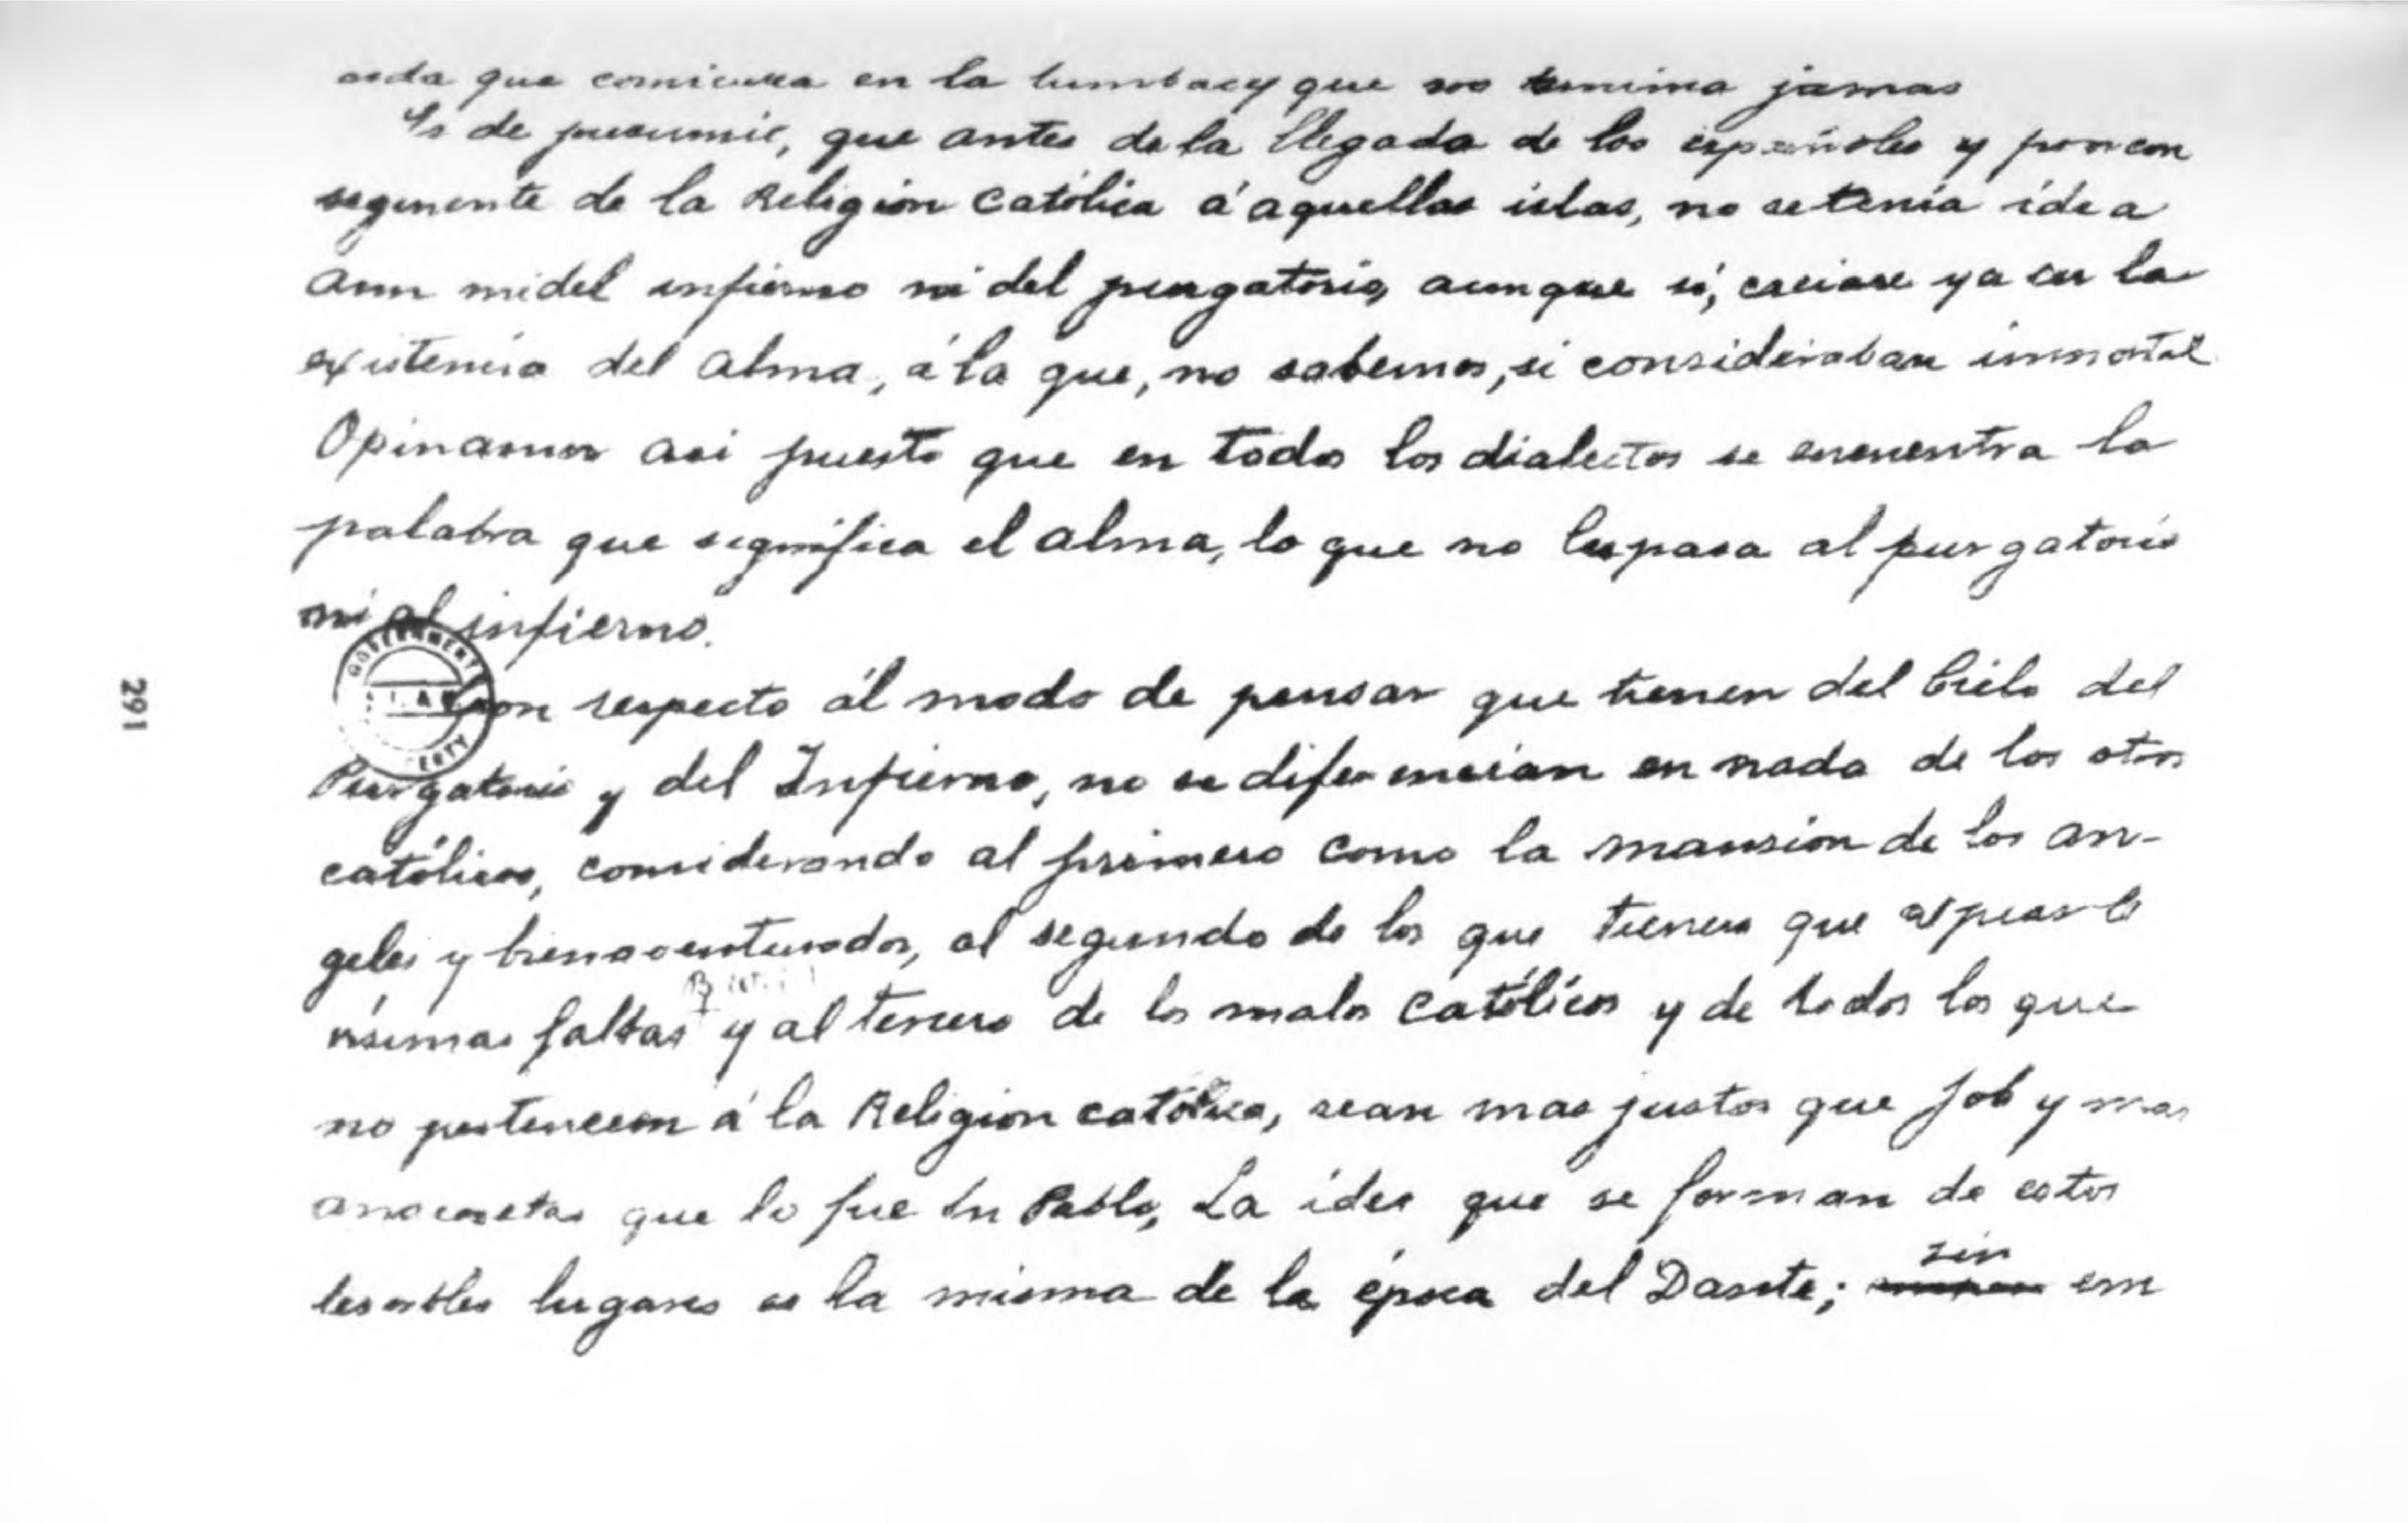 que comienza en la tumba y que no termina jamas
Es de presumir, que antes de la llegada de los españoles y por con
seguiente de la Religion Católica á aquellas islas, no se tenía idea
aun ni del infierno ni del purgatorio, aunque sí, creiase ya en la
existencia del alma, á la que, no sabemos, si consideraban inmortal
Opinamos asi puesto que en todos los dialectos se encuentra la
palabra que significa el alma, lo que no les pasa al purgatorio
ni al infierno.
Con respecto ál modo de pensar que tienen del Cielo del
Purgatorio y del Infierno, no se diferencian en nada de los otros
católicos, considerando al primero como la mansion de los an-
geles y bienaventurados, al segundo de los que tienen que
faltas y al tercero de los malos católicos y de todos los que
no pertenecen á la Religion católica, sean mas justos que Job y mas
anacoretas que lo fue Sn Pablo, La idea que se forman de estos
terribles lugares es la misma de la época del Dante; sin em
291